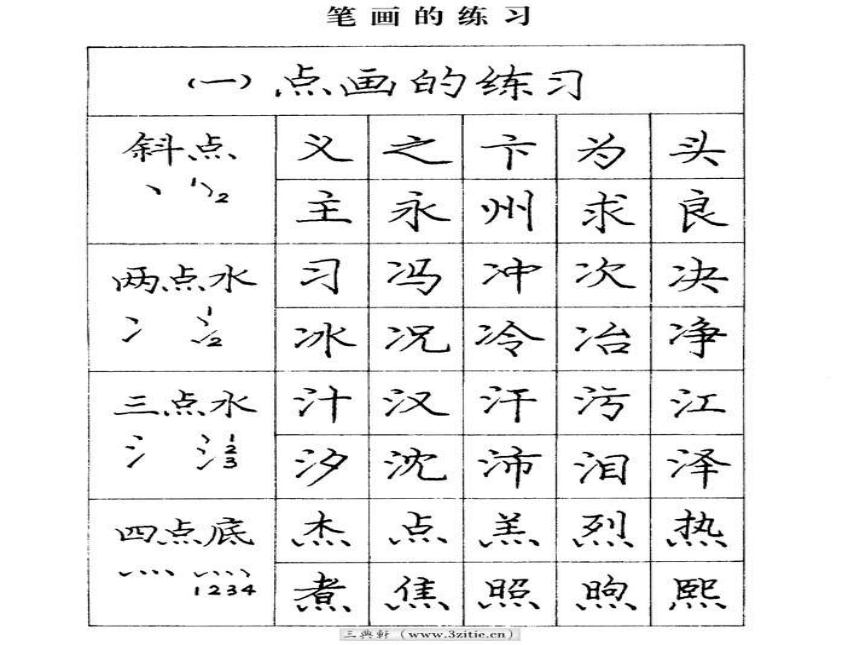 笔画的练习
(一)点画的练习
斜点 义 之 卞 为 头
丶 1 2 主 永 州 求 良
两点水 习 冯 冲 次 决
冫 1 2 冰 况 冷 冶 净
三点水 汁 汉 汗 污 江
氵 1 2 3 汐 沈 沛 泪 泽
四点底 杰 点 羔 烈 热
灬 1234 煮 焦 照 煦 熙
三典轩(www.3zitie.cn)